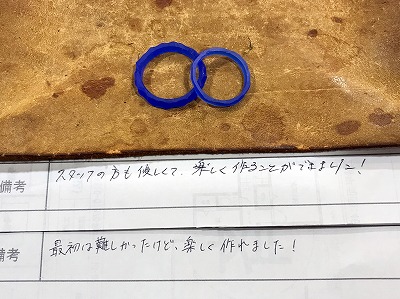 備考
スタッフの方も優しくて、楽しく作ることができました!
備考
最初は難しかったけど、楽しく作れました!